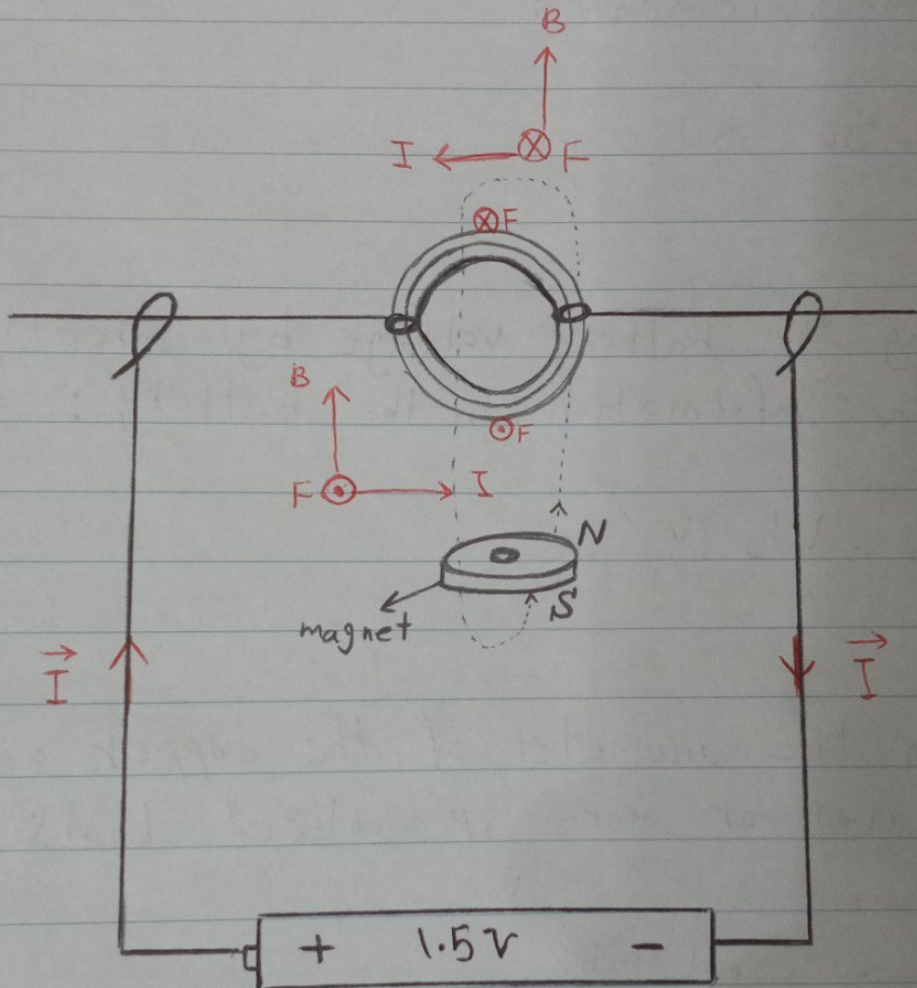 B
I F
F
B
F
F I
N
S
magnet
I I
+ 1.5V -